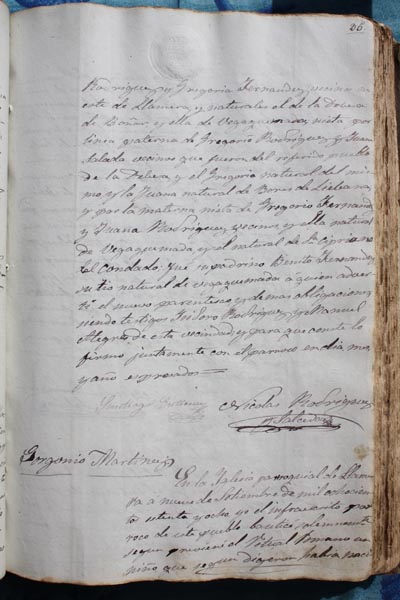 26
Rodriguez y Gregoria Fernandez, vecinos de
este de Llamera, y naturales el de la Devesa
de Boñar y ella de Vegaquemada, nieta por
linea paterna de Gregorio Rodriguez y Juana
vecinos que fueron del referido pueblo
de la Devesa, y el Gregorio natural del mis
mo y la Juana natural de
y por la materna nieta de Gregorio Fernand
y Juana Rodriguez, vecinos y ella natural
de Vegaquemada y el natural de Sn Cipriano
del Condado: fue su padrino Benito Fernandez
su tio natural de Vegaquemada á quien adver
ti el nuevo parentesco y demas obligaciones
siendo testigos Isidoro Rodriguez y Manuel
Alegre de esta vecindad y para que conste lo
firmo juntamente con el parroco en dia mes
y año expresados
Santiago Nicolas Rodriguez
Salcedo
Gorgonio Martinez
En la Iglesia parroquial de Llame
ra á nueve de Setiembre de mil ochocien
tos setenta y ocho yo el infrascrito par
roco de este pueblo bauticé solemnemente
segun previene el Ritual Romano un
niño que segun dijeron habia naci